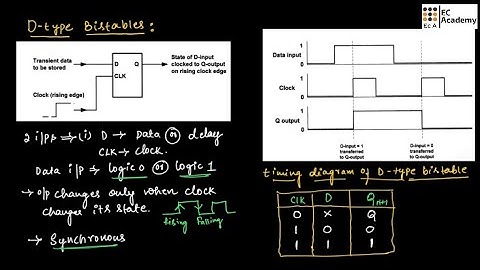 D-type Bistables:
EC
Academy
EC A
Transient data
to be stored
D
Q
CLK
State of D-input
clocked to Q-output
on rising clock edge
Clock (rising edge)
2 i/ps ⇒ (i) D → Data or delay
CLK → clock.
Data i/p → logic 0 or logic 1
→ o/p changes only when clock
changes its state.
rising falling
→ Synchronous
Data input
1
0
Clock
1
0
Q output
1
0
D-input = 1
transferred
to Q-output
D-input = 0
transferred
to Q-output
timing diagram of D-type bistable
Clk D Qn+1
0 X Q
1 0 0
1 1 1